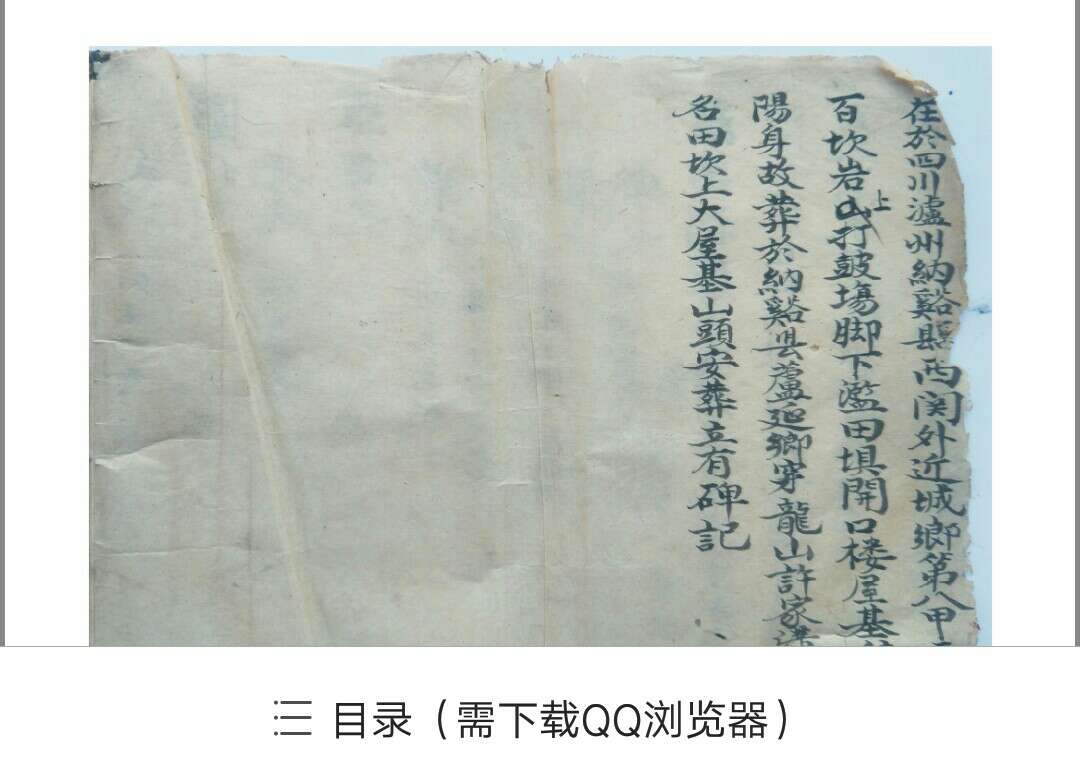 在於四川瀘州納谿縣西関外近城鄉第八甲
百坎岩上打鼓塲脚下濫田埧開口楼屋基
陽身故葬於納谿县蘆延鄉穿龍山許家溝
名田坎上大屋基山頭安葬立有碑記
目录（需下载QQ浏览器）